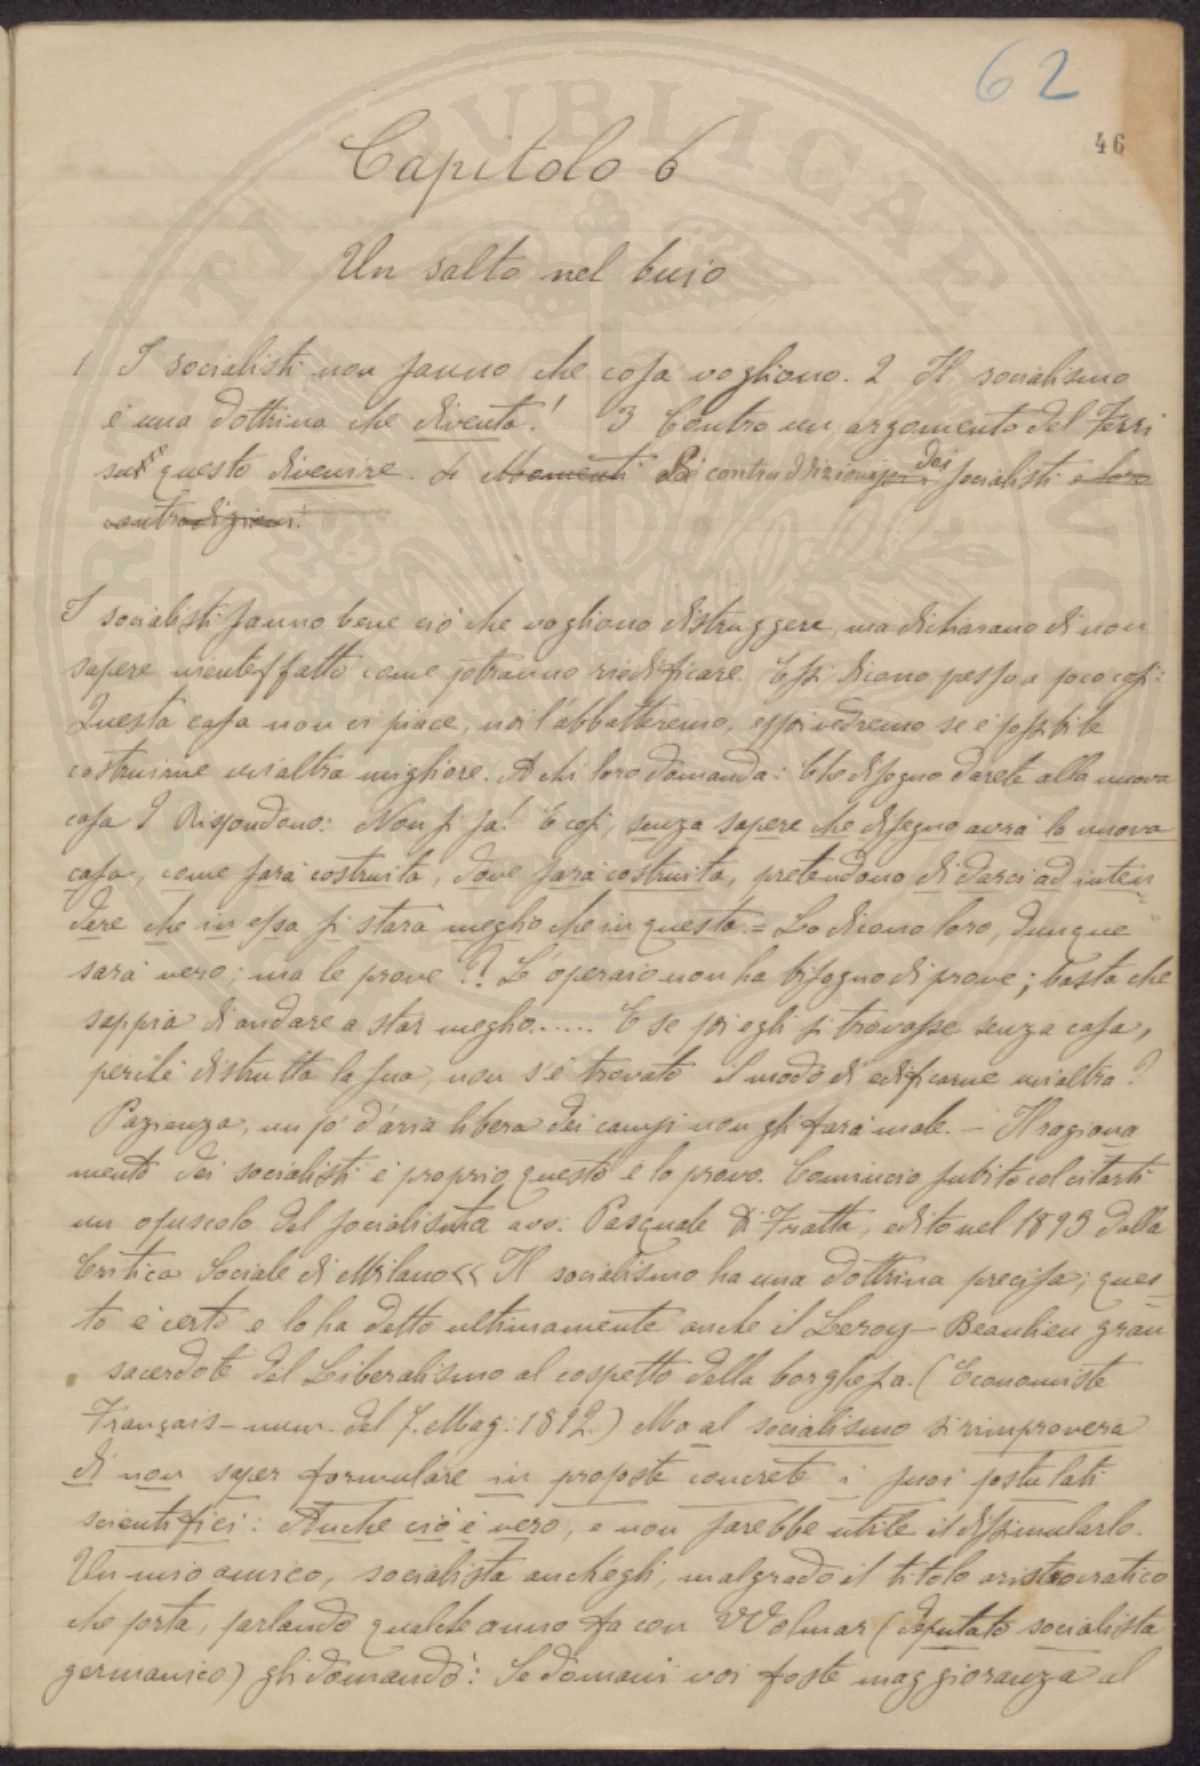 62
46
Capitolo 6
Un salto nel buio
1 I socialisti non sanno che cosa vogliono. 2 Il socialismo
è una dottrina che diventa! 3 Contro un argomento del Ferri
su questo divenire. 4 Momenti Le contraddizioni dei socialisti e loro
contradizioni.
I socialisti sanno bene ciò che vogliono distruggere, ma dichiarano di non
sapere nient'affatto come potranno riedificare. Essi dicono presso a poco così:
Questa casa non ci piace, noi l'abbatteremo, e poi vedremo se è possibile
costruirne un'altra migliore. A chi loro domanda: Che disegno darete alla nuova
casa? Rispondono: Non si sa! E così, senza sapere che disegno avrà la nuova
casa, come sarà costruita, dove sarà costruita, pretendono di darci ad inten
dere che in essa si starà meglio che in questa. = Lo dicono loro, dunque
sarà vero; ma le prove?! L'operaio non ha bisogno di prove; basta che
sappia di andare a star meglio..... E se poi egli si trovasse senza casa,
perché distrutta la sua, non s'è trovato il modo di edificarne un'altra?
Pazienza, un po' d'aria libera dei campi non gli farà male. – Il ragiona
mento dei socialisti è proprio questo e lo provo. Comincio subito col citarti
un opuscolo del socialista avv: Pasquale di Fratta, edito nel 1893 dalla
Critica Sociale di Milano << Il socialismo ha una dottrina precisa; ques=
to è certo e lo ha detto ultimamente anche il Leroy–Beaulieu gran
sacerdote del Liberalismo al cospetto della borghesia. (Economiste
Français – num. del 7. Mag: 1892.) Ma al socialismo si rimprovera
di non saper formulare in proposte concrete i suoi postulati
scientifici: Anche ciò è vero, e non sarebbe utile il dissimularlo.
Un mio amico, socialista anch'egli, malgrado il titolo aristocratico
che porta, parlando qualche anno fa con Wolmar (deputato socialista
germanico) gli domandò: Se domani voi foste maggioranza al